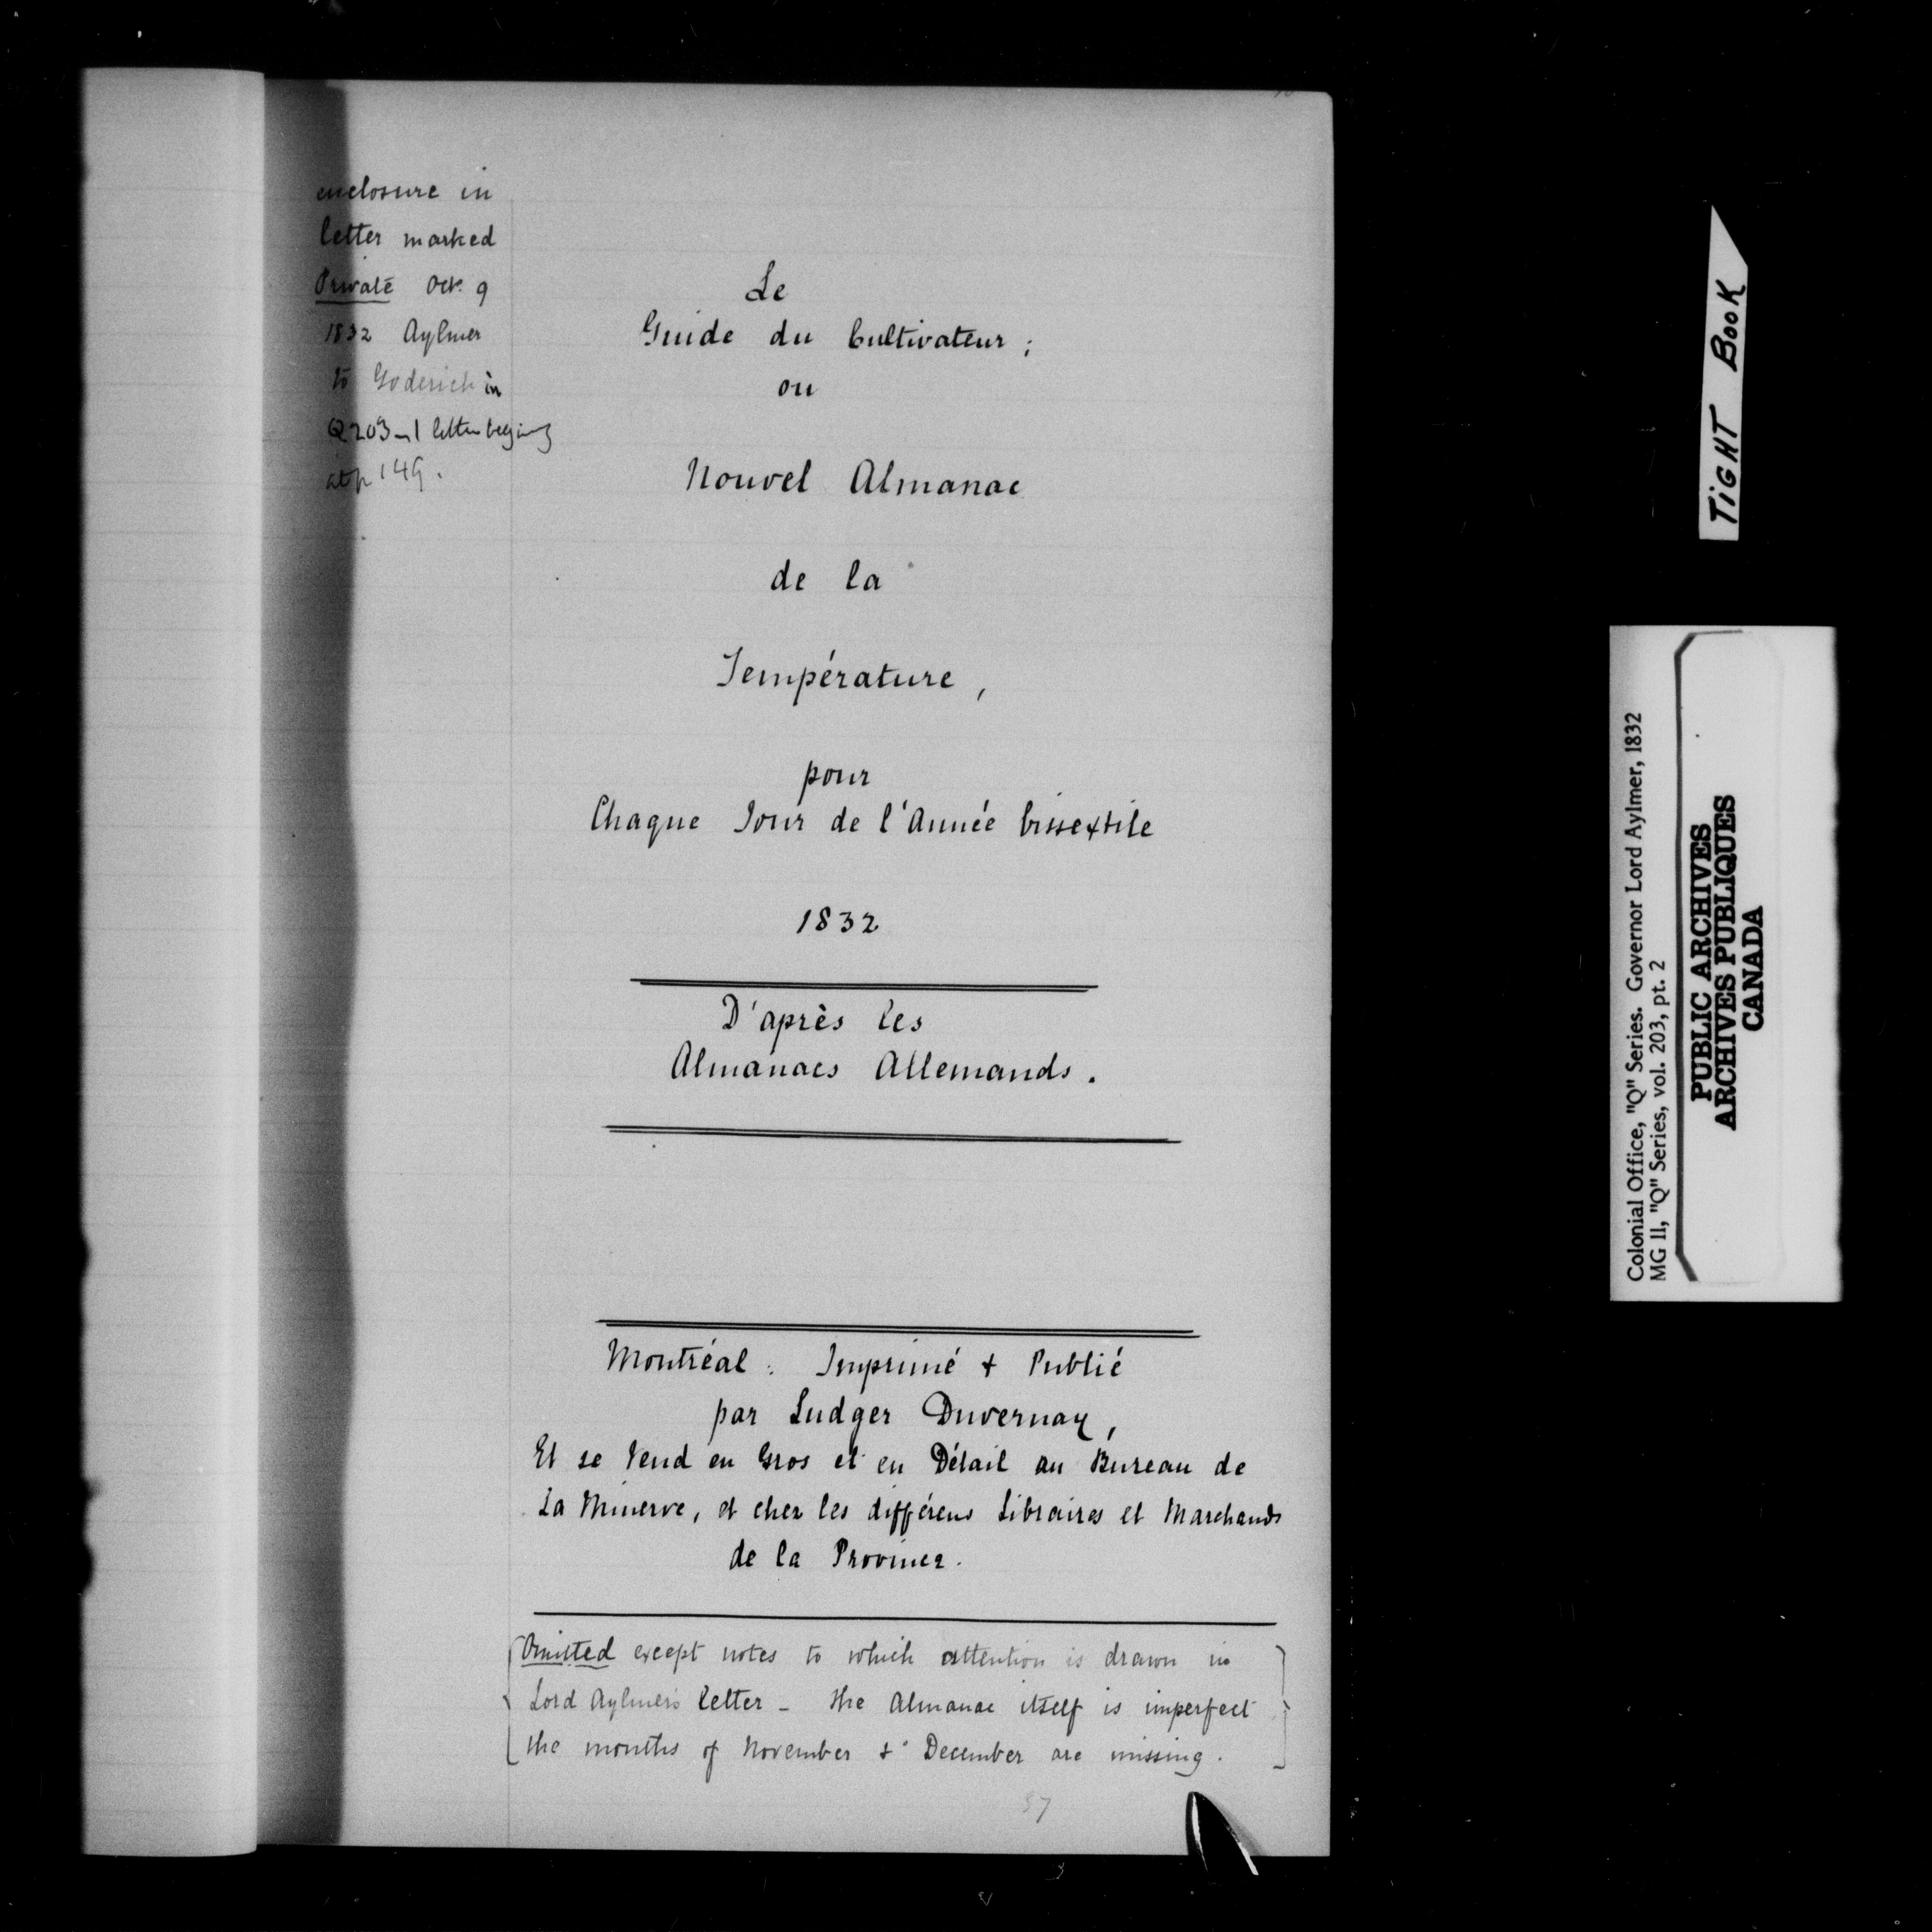 enclosure in
letter marked
Private Oct. 9
1832 Aylmer
to Goderich in
Q 203-1 letter beging
at p 149.
Le
Guide du Cultivateur ;
ou
Nouvel Almanac
de la
Température,
pour
Chaque Jour de l'Année bissextile
1832
D'après les
Almanacs Allemands.
Montréal : Imprimé & Publié
par Ludger Duvernay,
Et se Vend en Gros et en Détail au Bureau de
La Minerve, et chez les différens Libraires et Marchands
de la Province.
Omitted except notes to which attention is drawn in
Lord Aylmer's letter - the Almanac itself is imperfect
the months of November & December are missing.
37
TIGHT BOOK
Colonial Office, "Q" Series. Governor Lord Aylmer, 1832
MG 11, "Q" Series, vol. 203, pt. 2
PUBLIC ARCHIVES
ARCHIVES PUBLIQUES
CANADA